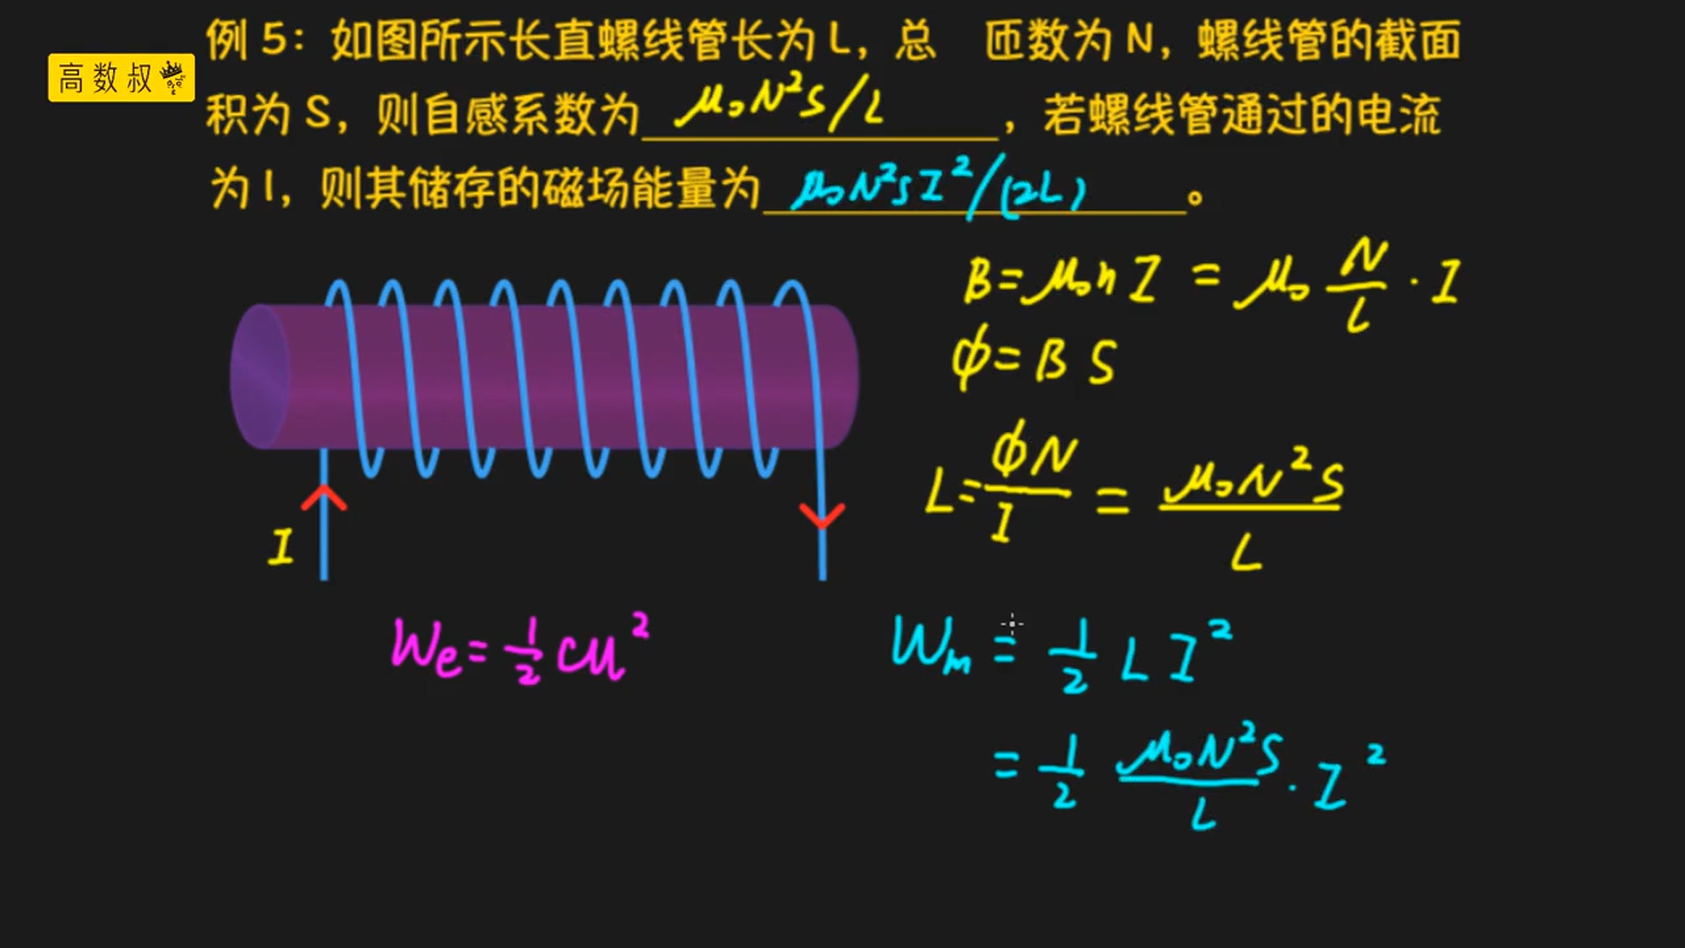 高数叔
例 5：如图所示长直螺线管长为 L，总 匝数为 N，螺线管的截面
积为 S，则自感系数为 μ₀N²S/L ，若螺线管通过的电流
为 I，则其储存的磁场能量为 μ₀N²SI²/(2L) 。
B=μ₀nI = μ₀ N/L · I
ϕ= B S
L= ϕN/I = μ₀N²S/L
I
We = 1/2 CU²
Wm = 1/2 L I²
= 1/2 μ₀N²S/L · I²